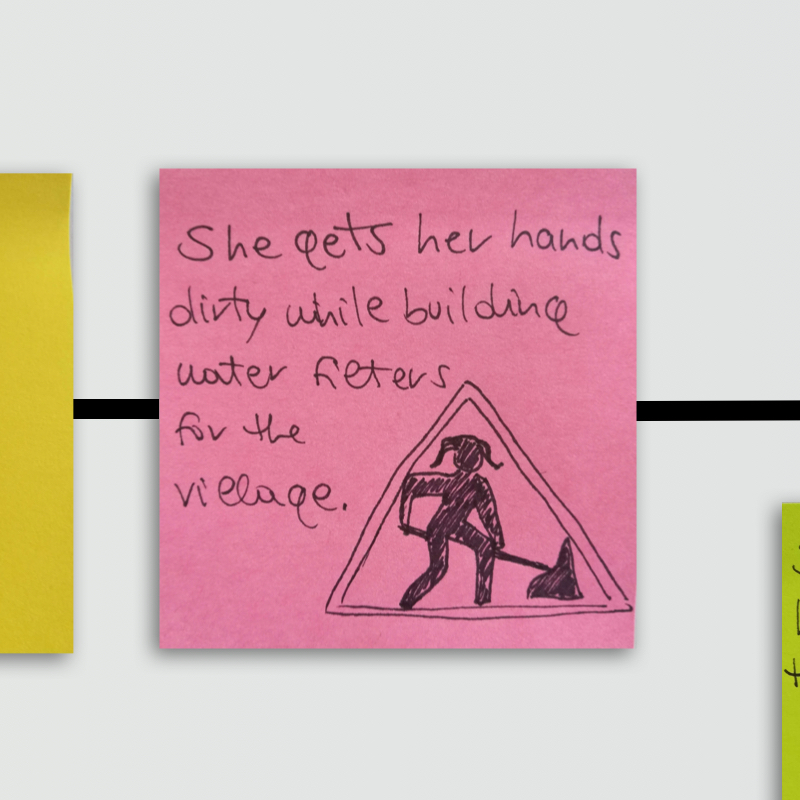 She gets her hands
dirty while building
water filters
for the
village.